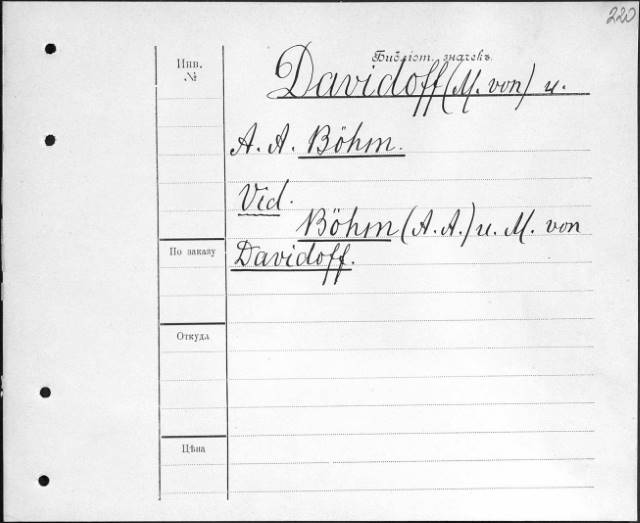 220
Инв.
№
Библіот. значекъ.
Davidoff (M. von) u.
A. A. Böhm.
Vid.
Böhm (A. A.) u. M. von
Davidoff.
По заказу
Откуда
Цѣна